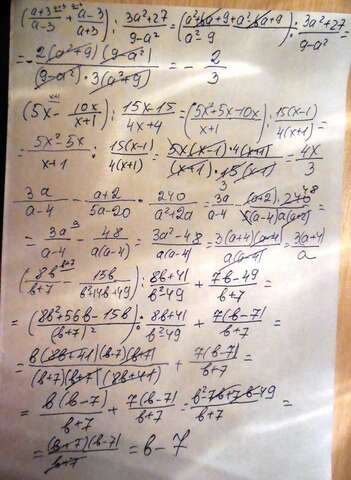 (a+3/a-3 + a-3/a+3) : 3a²+27/9-a² = (a²+6a+9+a²-6a+9/a²-9) : 3a²+27/9-a² =
= - 2(a²+9)(9-a²)/(9-a²)·3(a²+9) = - 2/3
(5x - 10x/x+1) : 15x-15/4x+4 = (5x²+5x-10x/x+1) : 15(x-1)/4(x+1) =
= 5x²-5x/x+1 : 15(x-1)/4(x+1) = 5x(x-1)·4(x+1)/(x+1)·15(x-1) = 4x/3
3a/a-4 - a+2/5a-20 · 240/a²+2a = 3a/a-4 - (a+2)·240/5(a-4)a(a+2) =
= 3a/a-4 - 48/a(a-4) = 3a²-48/a(a-4) = 3(a+4)(a-4)/a(a-4) = 3(a+4)/a
(8b/b+7 - 15b/b²+14b+49) : 8b+41/b²-49 + 7b-49/b+7 =
= (8b²+56b-15b/(b+7)²) : 8b+41/b²-49 + 7(b-7)/b+7 =
= b(8b+41)(b-7)(b+7)/(b+7)(b+7)(8b+41) + 7(b-7)/b+7 =
= b(b-7)/b+7 + 7(b-7)/b+7 = b²-7b+7b-49/b+7 =
= (b+7)(b-7)/b+7 = b-7